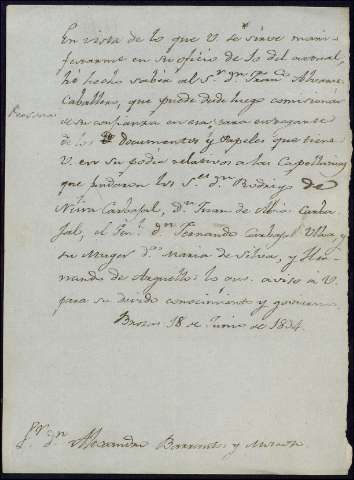 En vista de lo que V. se sirve mani-
festarme en su oficio de 10 del actual,
hé hecho saber al S.r d.n Fran.co Alvarez
Caballero, que puede desde luego comisionar
de su confianza en esa, para
de los documentos y papeles que tiene
V. en su poder relativos a las Capellanias
que fundaron los S.es d.n Rodrigo de
Neira Carbajal, D.n Juan de Carba-
jal, el d.n Fernando Carbajal Ulloa y
su Muger d.a Maria de Silva, y Her-
nando de Arguello: lo que aviso a V.
para su debido conocimiento y govierno.
Brozas 18 de Junio de 1834.
S.r d.n Alexandro Barrantes y